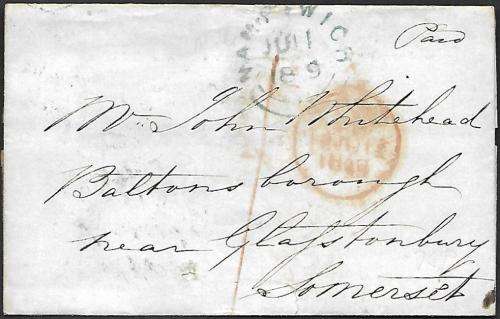 NANTWICH
JU 11
Paid
Mr. John Whitehead
Baltonsborough
near Glasstonbury
Somerset
1